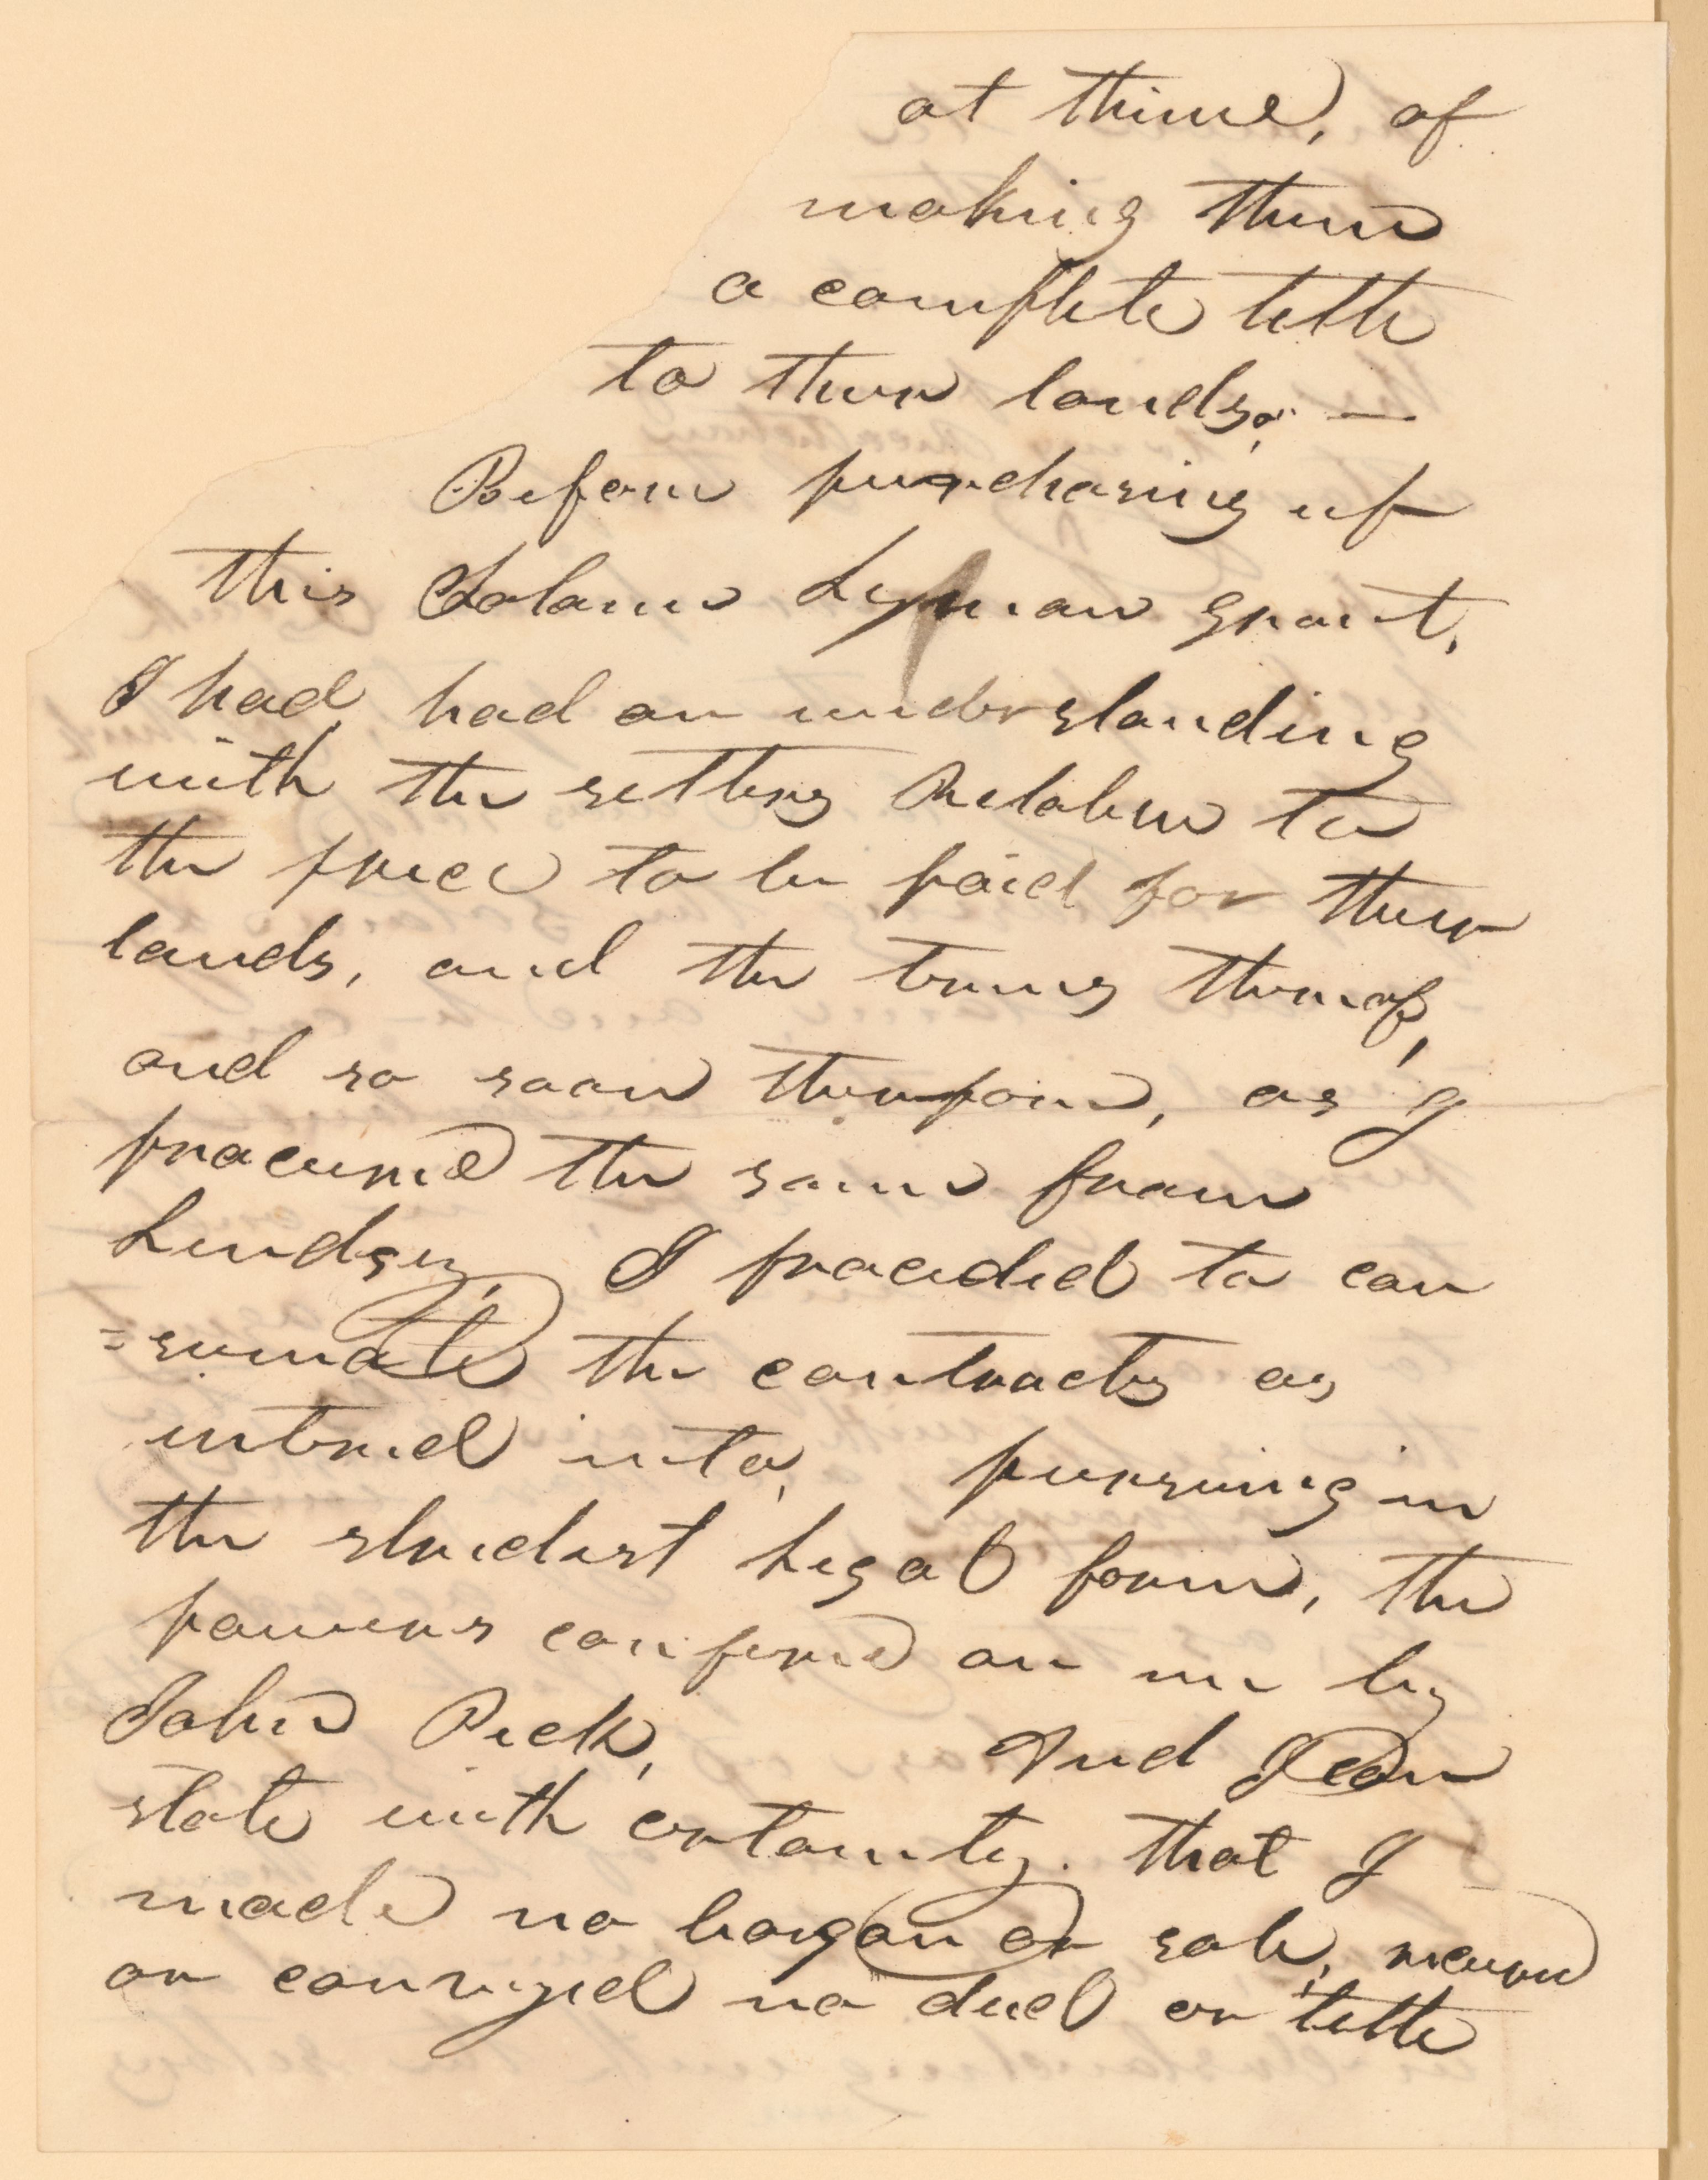 at thime, of
making them
a complete title
to their lands. —
Before purchasing up
this Solano Lyman grant,
I had, had an understanding
with the settlers Relative to
the price to be paid for their
lands, and the terms thereof,
and so soon therefore, as I
procured the same from
Lindsey, I proceeded to con
=sumate the contracts as
entered into, pursuing in
the strictest legal form, the
powers confered on me by
John Peck, And I can
state with certainty. that I
made no bargan or sale,
or conveyed no deed or title